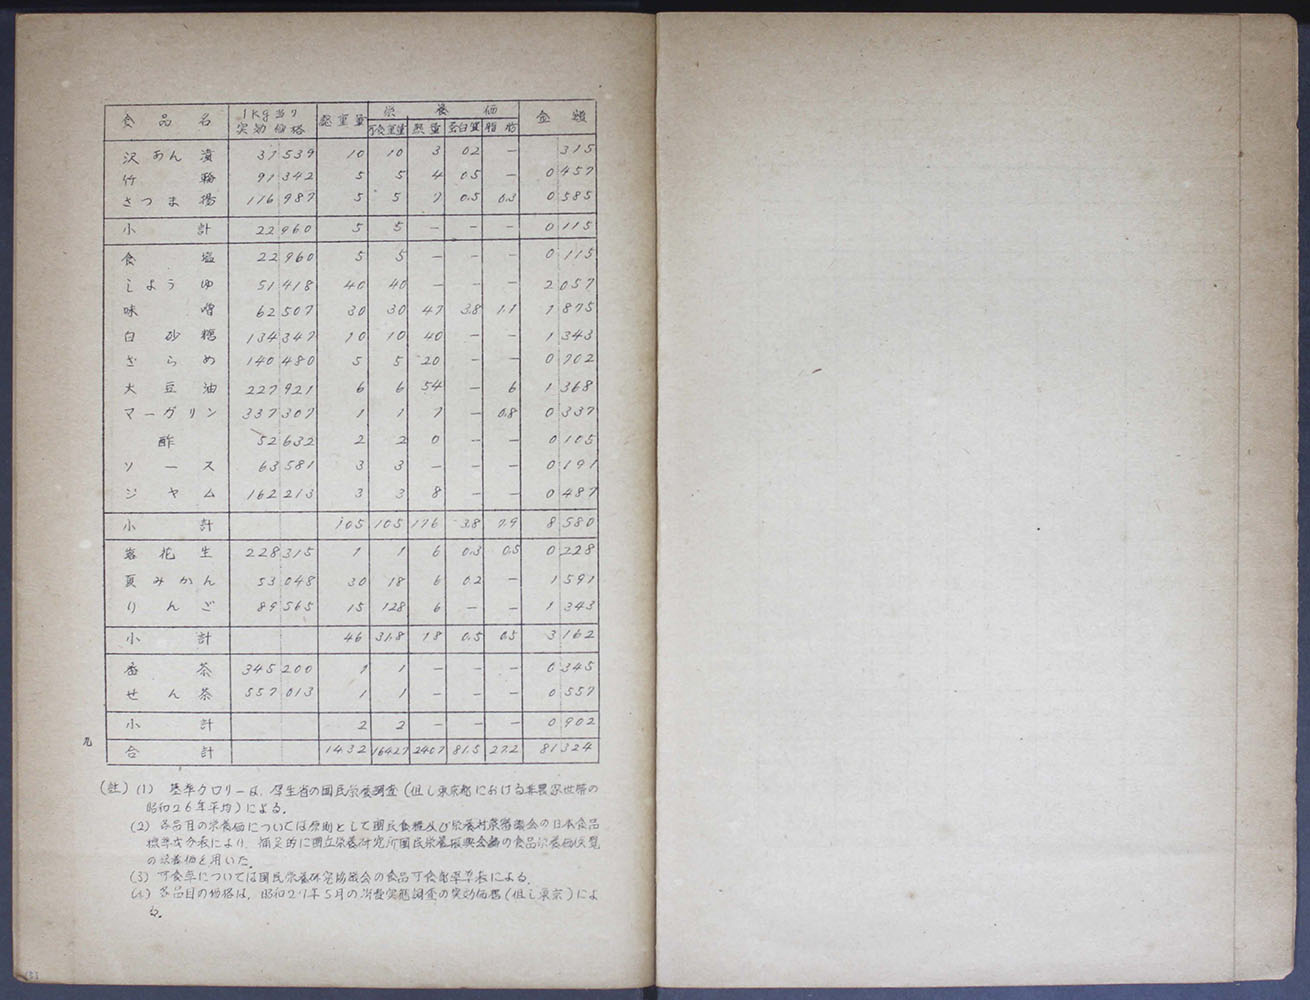 食品名 1kg当り実効価格 総重量 栄養価 金額
可食重量 熱量 蛋白質 脂肪
沢あん漬 31 539 10 10 3 0.2 — 315
竹輪 91 342 5 5 4 0.5 — 0 457
さつま揚 116 987 5 5 7 0.5 0.3 0 585
小計 22 960 5 5 — — — 0 115
食塩 22 960 5 5 — — — 0 115
しようゆ 51 418 40 40 — — — 2 057
味噌 62 507 30 30 47 3.8 1.1 1 875
白砂糖 134 347 10 10 40 — — 1 343
ざらめ 140 480 5 5 20 — — 0 702
大豆油 227 921 6 6 54 — 6 1 368
マーガリン 337 307 1 1 7 — 0.8 0 337
酢 52 632 2 2 0 — — 0 105
ソース 63 581 3 3 — — — 0 191
ジヤム 162 213 3 3 8 — — 0 487
小計 105 105 176 3.8 7.9 8 580
落花生 228 315 1 1 6 0.3 0.5 0 228
夏みかん 53 048 30 18 6 0.2 — 1 591
りんご 89 565 15 128 6 — — 1 343
小計 46 31.8 18 0.5 0.5 3 162
番茶 345 200 1 1 — — — 0 345
せん茶 557 013 1 1 — — — 0 557
小計 2 2 — — — 0 902
合計 1432 1642.7 2407 81.5 27.2 81 324
九
(註) (1) 基準カロリーは、厚生省の国民栄養調査(但し東京都における非農家世帯の
昭和26年平均)による。
(2) 各品目の栄養価については原則として国民食糧及び栄養対策審議会の日本食品
標準成分表により、補足的に国立栄養研究所国民栄養振興会編の食品栄養価要覧
の栄養価を用いた。
(3) 可食率については国民栄養研究協議会の食品可食率早見表による。
(4) 各品目の価格は、昭和27年5月の消費実態調査の実効価格(但し東京)によ
る。